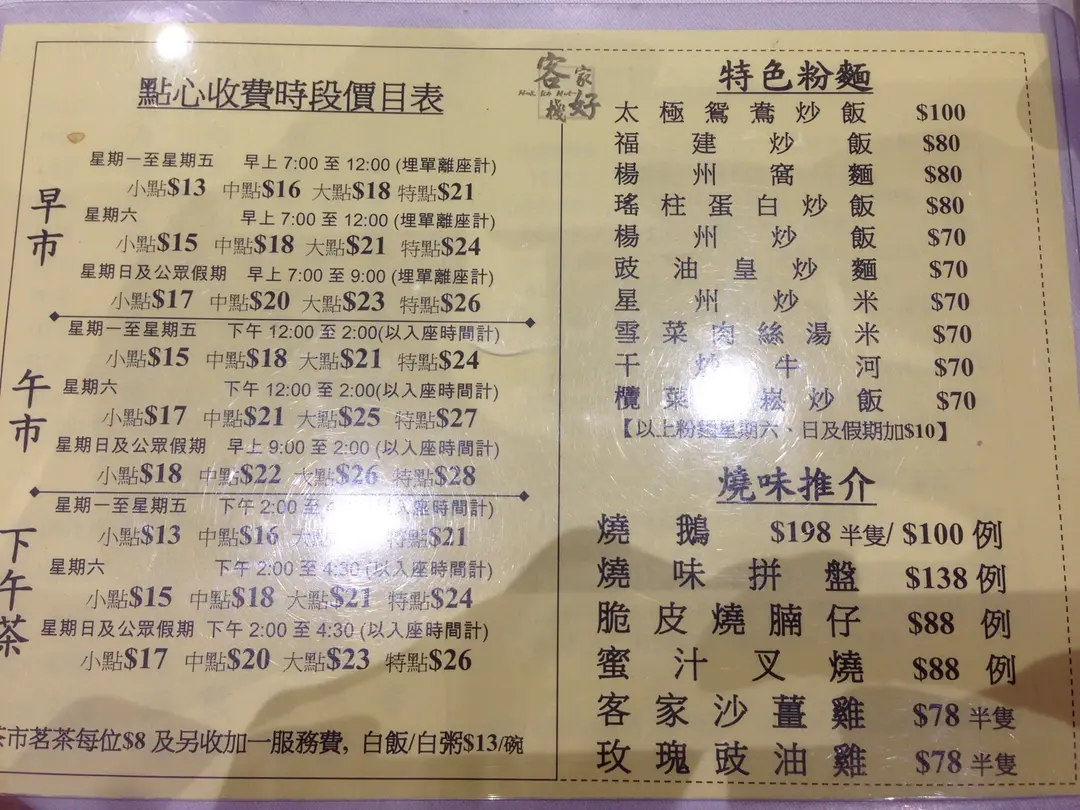 點心收費時段價目表
早市
星期一至星期五 早上 7:00 至 12:00 (埋單離座計)
小點$13 中點$16 大點$18 特點$21
星期六 早上 7:00 至 12:00 (埋單離座計)
小點$15 中點$18 大點$21 特點$24
星期日及公眾假期 早上 7:00 至 9:00 (埋單離座計)
小點$17 中點$20 大點$23 特點$26
午市
星期一至星期五 下午 12:00 至 2:00(以入座時間計)
小點$15 中點$18 大點$21 特點$24
星期六 下午 12:00 至 2:00(以入座時間計)
小點$17 中點$21 大點$25 特點$27
星期日及公眾假期 早上 9:00 至 2:00 (以入座時間計)
小點$18 中點$22 大點$26 特點$28
下午茶
星期一至星期五 下午 2:00 至 入座時間計)
小點$13 中點$16 特點$21
星期六 下午 2:00 至 4:30 (以入座時間計)
小點$15 中點$18 大點$21 特點$24
星期日及公眾假期 下午 2:00 至 4:30 (以入座時間計)
小點$17 中點$20 大點$23 特點$26
茶市茗茶每位$8 及另收加一服務費, 白飯/白粥$13/碗
客家好棧
特色粉麵
太極鴛鴦炒飯 $100
福建炒飯 $80
楊州窩麵 $80
瑤柱蛋白炒飯 $80
楊州炒飯 $70
豉油皇炒麵 $70
星州炒米 $70
雪菜肉絲湯米 $70
干炒牛河 $70
欖菜 崧炒飯 $70
【以上粉麵星期六、日及假期加$10】
燒味推介
燒鵝 $198 半隻/ $100 例
燒味拼盤 $138 例
脆皮燒腩仔 $88 例
蜜汁叉燒 $88 例
客家沙薑雞 $78 半隻
玫瑰豉油雞 $78 半隻